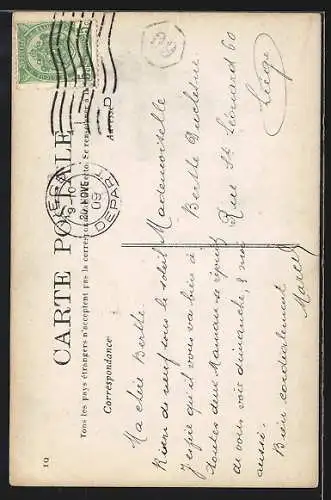 CARTE POSTALE
Tous les pays étrangers n'acceptent pas la correspondance au recto. Se renseigner à la
Correspondance
Adresse
D
LIEGE
9-10
NOVE
09
DEPART
Ma chère Berthe
Rien de neuf sous le soleil
J'espère qu'il vous va bien à
toutes deux Maman se réjouit
de vous voir dimanche, & moi
aussi.
Bien cordialement
Marcel
Mademoiselle
Berthe
Rue St Léonard 60
Liége
19